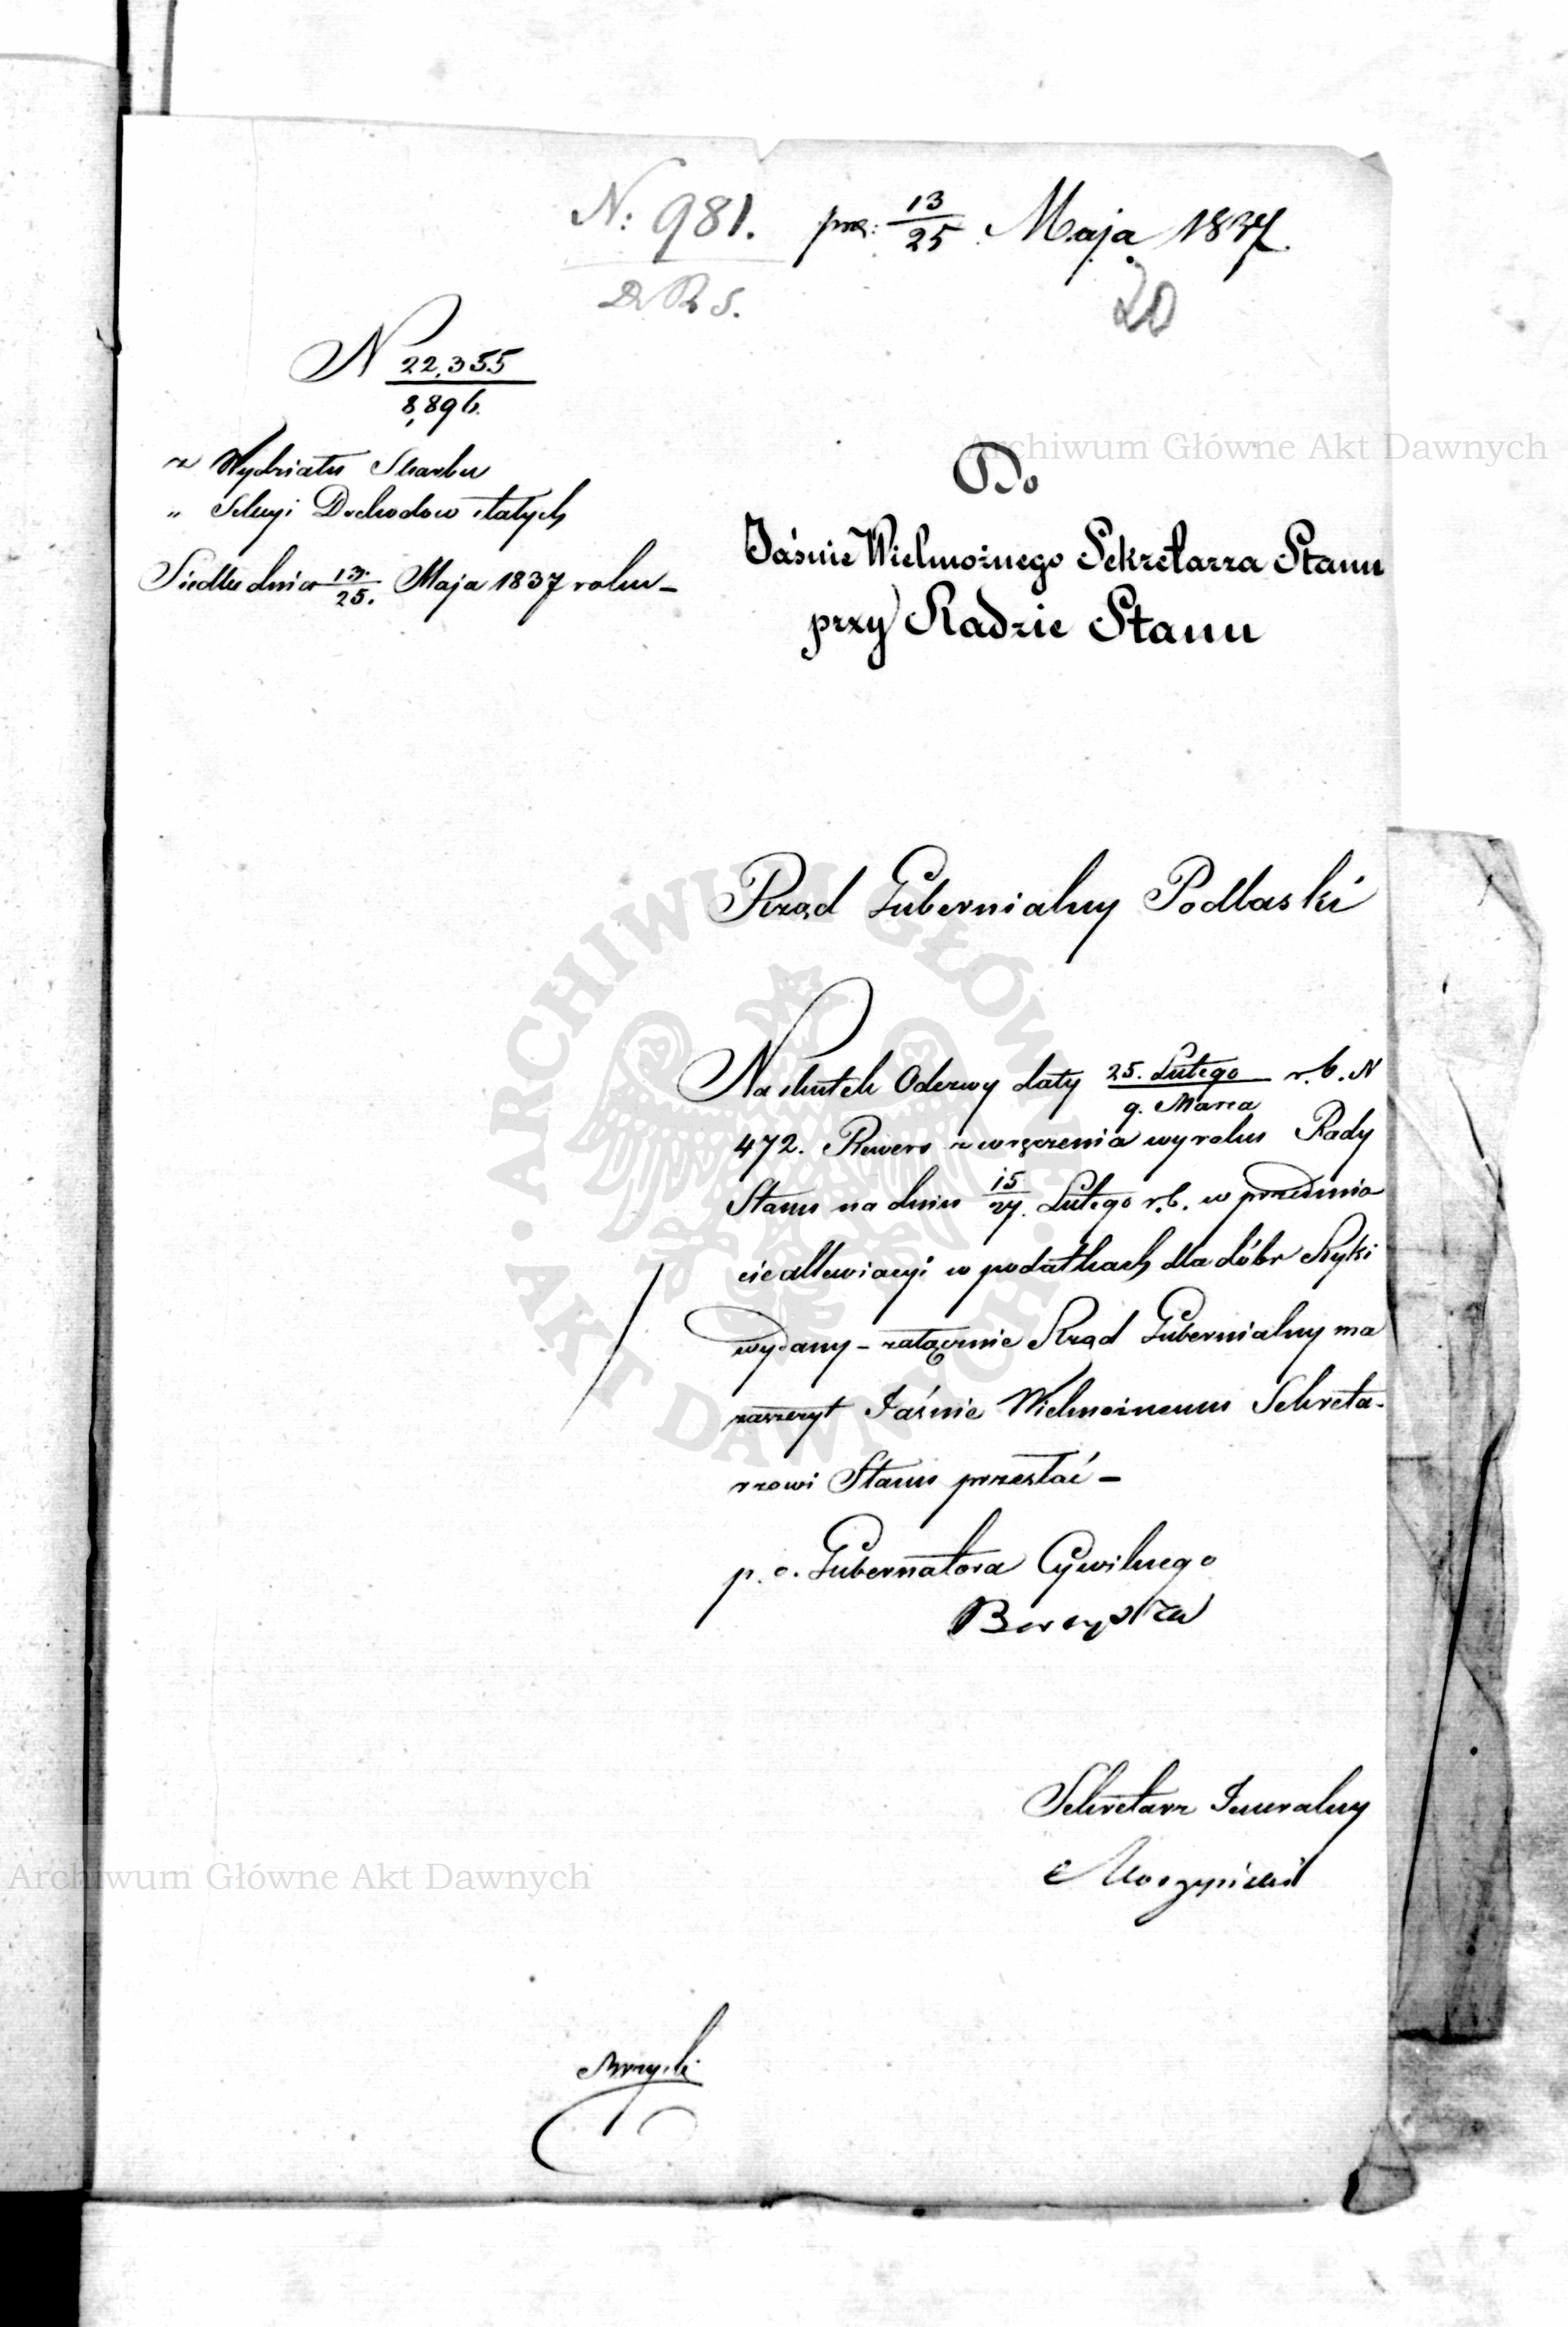 N: 981. prez: 13/25 Maja 1837.
D. R. S.
20
N 22,355/8,896.
z Wydziału Skarbu
„ Sekcyi Dochodow stałych
Siedlce dnia 13./25. Maja 1837 roku –
Do
Jaśnie Wielmożnego Sekretarza Stanu
przy Radzie Stanu
Rząd Gubernialny Podlaski
Na skutek Odezwy daty 25. Lutego/9. Marca r. b. N
472. Rewers z wręczenia wyroku Rady
Stanu na dniu 15/27. Lutego r. b. w przedmio
cie allewiacyi w podatkach dla dóbr Ryki
wydany – załącznie Rząd Gubernialny ma
zaszczyt Jaśnie Wielmożnemu Sekreta-
rzowi Stanu przesłać –
p. o. Gubernatora Cywilnego
Sekretarz Generalny
Archiwum Główne Akt Dawnych
Archiwum Główne Akt Dawnych
ARCHIWUM GŁÓWNE AKT DAWNYCH